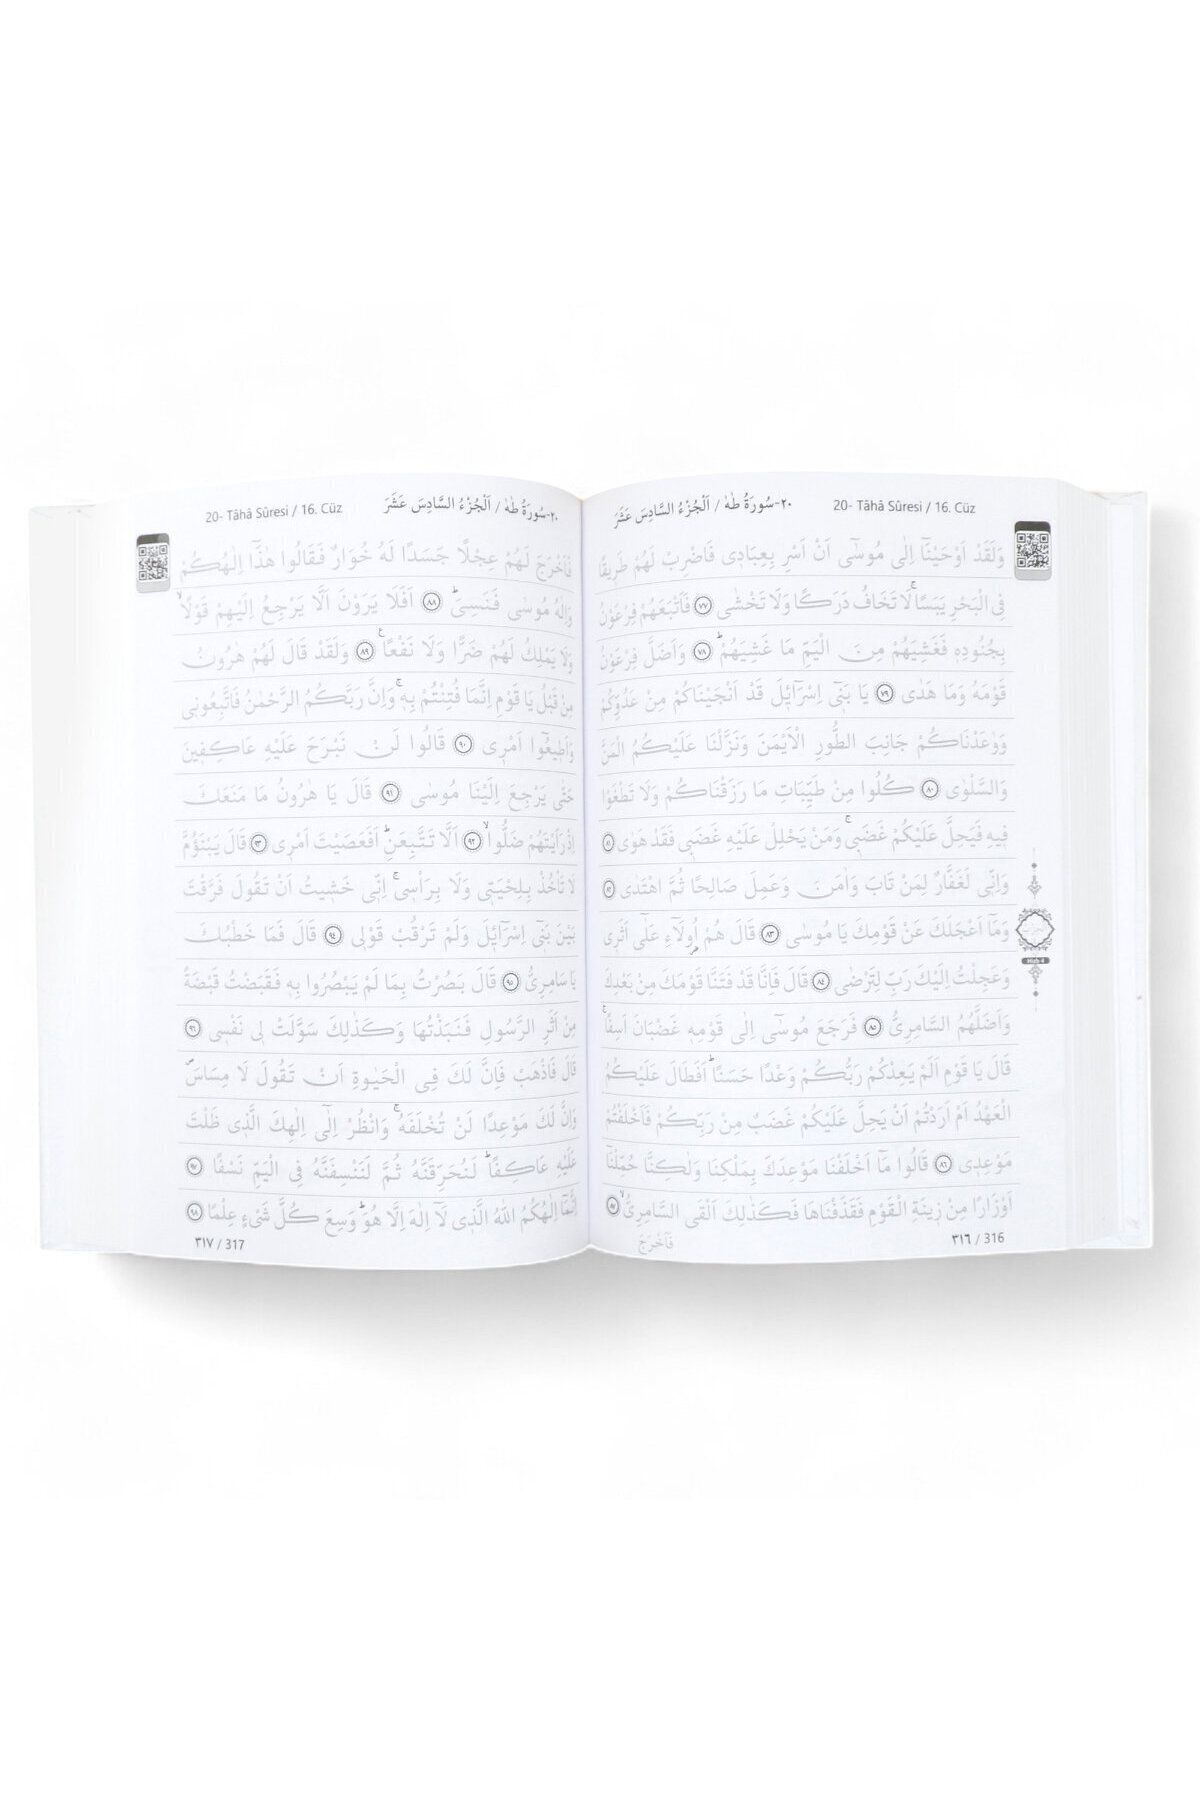 ٢٠-سُورَةُ طٰهٰ / اَلْجُزْءُ السَّادِسَ عَشَرَ 20- Tâhâ Sûresi / 16. Cüz
وَلَقَدْ اَوْحَيْنَٓا اِلٰى مُوسٰٓى اَنْ اَسْرِ بِعِبَادٖى فَاضْرِبْ لَهُمْ طَرٖيقًا
فِى الْبَحْرِ يَبَسًاۚ لَا تَخَافُ دَرَكًا وَلَا تَخْشٰى ﴿٧٧﴾ فَاَتْبَعَهُمْ فِرْعَوْنُ
بِجُنُودِهٖ فَغَشِيَهُمْ مِنَ الْيَمِّ مَا غَشِيَهُمْۜ ﴿٧٨﴾ وَاَضَلَّ فِرْعَوْنُ
قَوْمَهُ وَمَا هَدٰى ﴿٧٩﴾ يَا بَنٖٓى اِسْرَٓائٖلَ قَدْ اَنْجَيْنَاكُمْ مِنْ عَدُوِّكُمْ
وَوٰعَدْنَاكُمْ جَانِبَ الطُّورِ الْاَيْمَنَ وَنَزَّلْنَا عَلَيْكُمُ الْمَنَّ
وَالسَّلْوٰى ﴿٨٠﴾ كُلُوا مِنْ طَيِّبَاتِ مَا رَزَقْنَاكُمْ وَلَا تَطْغَوْا
فٖيهِ فَيَحِلَّ عَلَيْكُمْ غَضَبٖىۚ وَمَنْ يَحْلِلْ عَلَيْهِ غَضَبٖى فَقَدْ هَوٰى ﴿٨١﴾
وَاِنّٖى لَغَفَّارٌ لِمَنْ تَابَ وَاٰمَنَ وَعَمِلَ صَالِحًا ثُمَّ اهْتَدٰى ﴿٨٢﴾
وَمَٓا اَعْجَلَكَ عَنْ قَوْمِكَ يَا مُوسٰى ﴿٨٣﴾ قَالَ هُمْ اُو۬لَٓاءِ عَلٰٓى اَثَرٖى
وَعَجِلْتُ اِلَيْكَ رَبِّ لِتَرْضٰى ﴿٨٤﴾ قَالَ فَاِنَّا قَدْ فَتَنَّا قَوْمَكَ مِنْ بَعْدِكَ
وَاَضَلَّهُمُ السَّامِرِىُّ ﴿٨٥﴾ فَرَجَعَ مُوسٰٓى اِلٰى قَوْمِهٖ غَضْبَانَ اَسِفًاۚ
قَالَ يَا قَوْمِ اَلَمْ يَعِدْكُمْ رَبُّكُمْ وَعْدًا حَسَنًاۜ اَفَطَالَ عَلَيْكُمُ
الْعَهْدُ اَمْ اَرَدْتُمْ اَنْ يَحِلَّ عَلَيْكُمْ غَضَبٌ مِنْ رَبِّكُمْ فَاَخْلَفْتُمْ
مَوْعِدٖى ﴿٨٦﴾ قَالُوا مَٓا اَخْلَفْنَا مَوْعِدَكَ بِمَلْكِنَا وَلٰكِنَّا حُمِّلْنَٓا
اَوْزَارًا مِنْ زٖينَةِ الْقَوْمِ فَقَذَفْنَاهَا فَكَذٰلِكَ اَلْقَى السَّامِرِىُّۙ ﴿٨٧﴾
Hizb 4
٣١٦ / 316
فَاَخْرَجَ
٢٠-سُورَةُ طٰهٰ / اَلْجُزْءُ السَّادِسَ عَشَرَ 20- Tâhâ Sûresi / 16. Cüz
فَاَخْرَجَ لَهُمْ عِجْلًا جَسَدًا لَهُ خُوَارٌ فَقَالُوا هٰذَٓا اِلٰهُكُمْ
وَاِلٰهُ مُوسٰى فَنَسِىَۜ ﴿٨٨﴾ اَفَلَا يَرَوْنَ اَلَّا يَرْجِعُ اِلَيْهِمْ قَوْلًاۙ
وَلَا يَمْلِكُ لَهُمْ ضَرًّا وَلَا نَفْعًا ﴿٨٩﴾ وَلَقَدْ قَالَ لَهُمْ هٰرُونُ
مِنْ قَبْلُ يَا قَوْمِ اِنَّمَا فُتِنْتُمْ بِهٖۚ وَاِنَّ رَبَّكُمُ الرَّحْمٰنُ فَاتَّبِعُونٖى
وَاَطٖيعُٓوا اَمْرٖى ﴿٩٠﴾ قَالُوا لَنْ نَبْرَحَ عَلَيْهِ عَاكِفٖينَ
حَتّٰى يَرْجِعَ اِلَيْنَا مُوسٰى ﴿٩١﴾ قَالَ يَا هٰرُونُ مَا مَنَعَكَ
اِذْ رَاَيْتَهُمْ ضَلُّواۙ ﴿٩٢﴾ اَلَّا تَتَّبِعَنِۜ اَفَعَصَيْتَ اَمْرٖى ﴿٩٣﴾ قَالَ يَبْنَؤُمَّ
لَا تَأْخُذْ بِلِحْيَتٖى وَلَا بِرَأْسٖىۚ اِنّٖى خَشٖيتُ اَنْ تَقُولَ فَرَّقْتَ
بَيْنَ بَنٖٓى اِسْرَٓائٖلَ وَلَمْ تَرْقُبْ قَوْلٖى ﴿٩٤﴾ قَالَ فَمَا خَطْبُكَ
يَا سَامِرِىُّ ﴿٩٥﴾ قَالَ بَصُرْتُ بِمَا لَمْ يَبْصُرُوا بِهٖ فَقَبَضْتُ قَبْضَةً
مِنْ اَثَرِ الرَّسُولِ فَنَبَذْتُهَا وَكَذٰلِكَ سَوَّلَتْ لٖى نَفْسٖى ﴿٩٦﴾
قَالَ فَاذْهَبْ فَاِنَّ لَكَ فِى الْحَيٰوةِ اَنْ تَقُولَ لَا مِسَاسَۖ
وَاِنَّ لَكَ مَوْعِدًا لَنْ تُخْلَفَهُۚ وَانْظُرْ اِلٰٓى اِلٰهِكَ الَّذٖى ظَلْتَ
عَلَيْهِ عَاكِفًاۜ لَنُحَرِّقَنَّهُ ثُمَّ لَنَنْسِفَنَّهُ فِى الْيَمِّ نَسْفًا ﴿٩٧﴾
اِنَّمَٓا اِلٰهُكُمُ اللّٰهُ الَّذٖى لَٓا اِلٰهَ اِلَّا هُوَۜ وَسِعَ كُلَّ شَىْءٍ عِلْمًا ﴿٩٨﴾
٣١٧ / 317